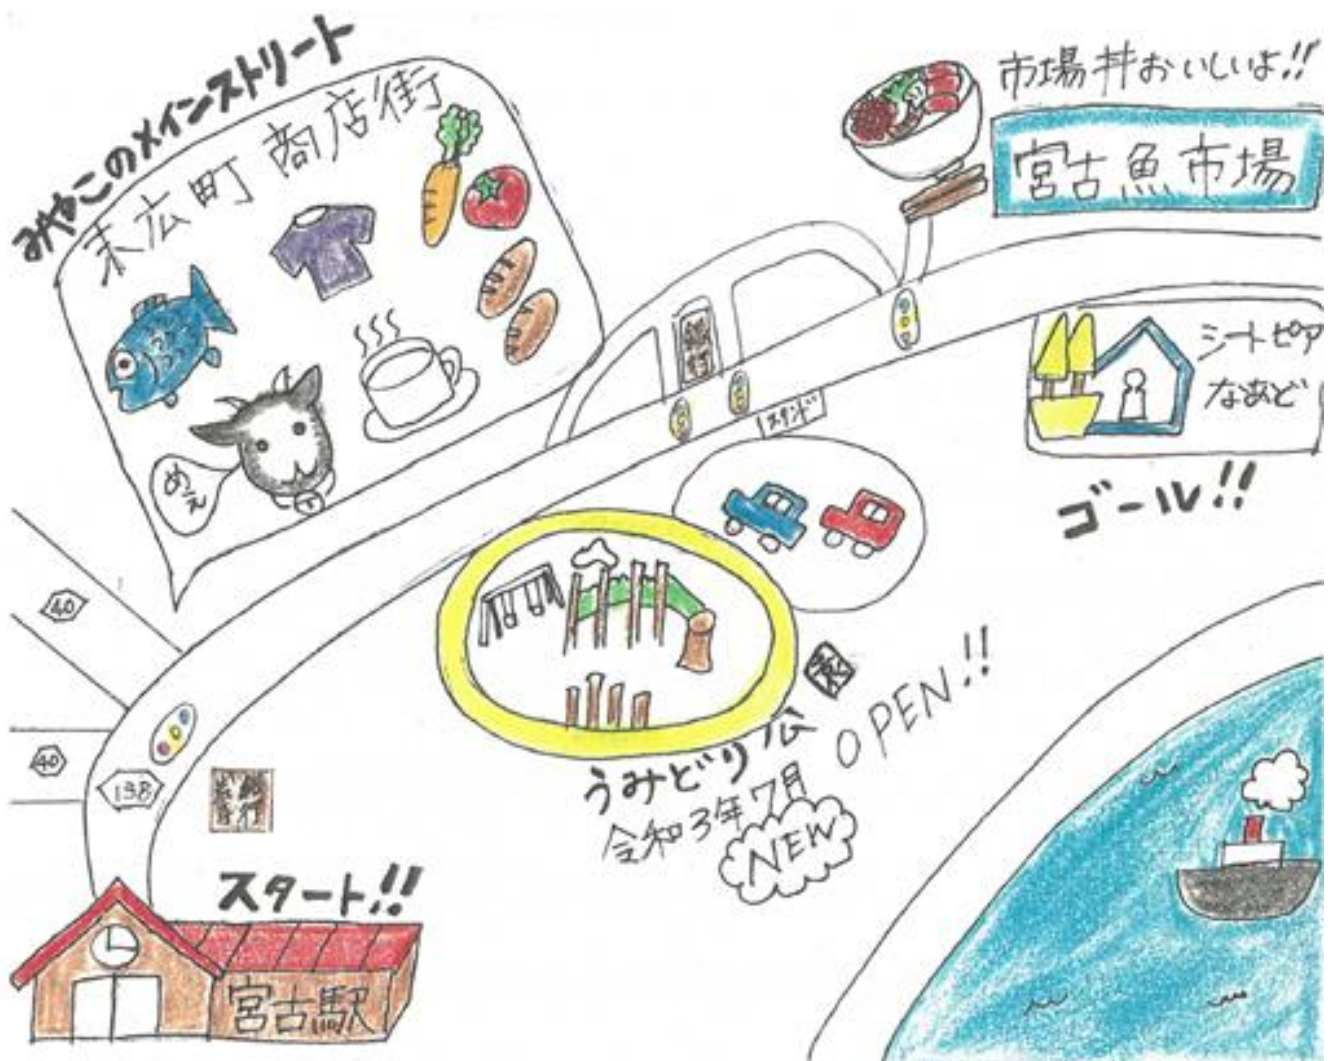 みやこのメインストリート
末広町商店街
めぇ
市場丼おいしいよ!!
宮古魚市場
シートピア
なあど
ゴール!!
スタンド
40
40
138
うみどり公
OPEN!!
令和3年7月
NEW
スタート!!
宮古駅